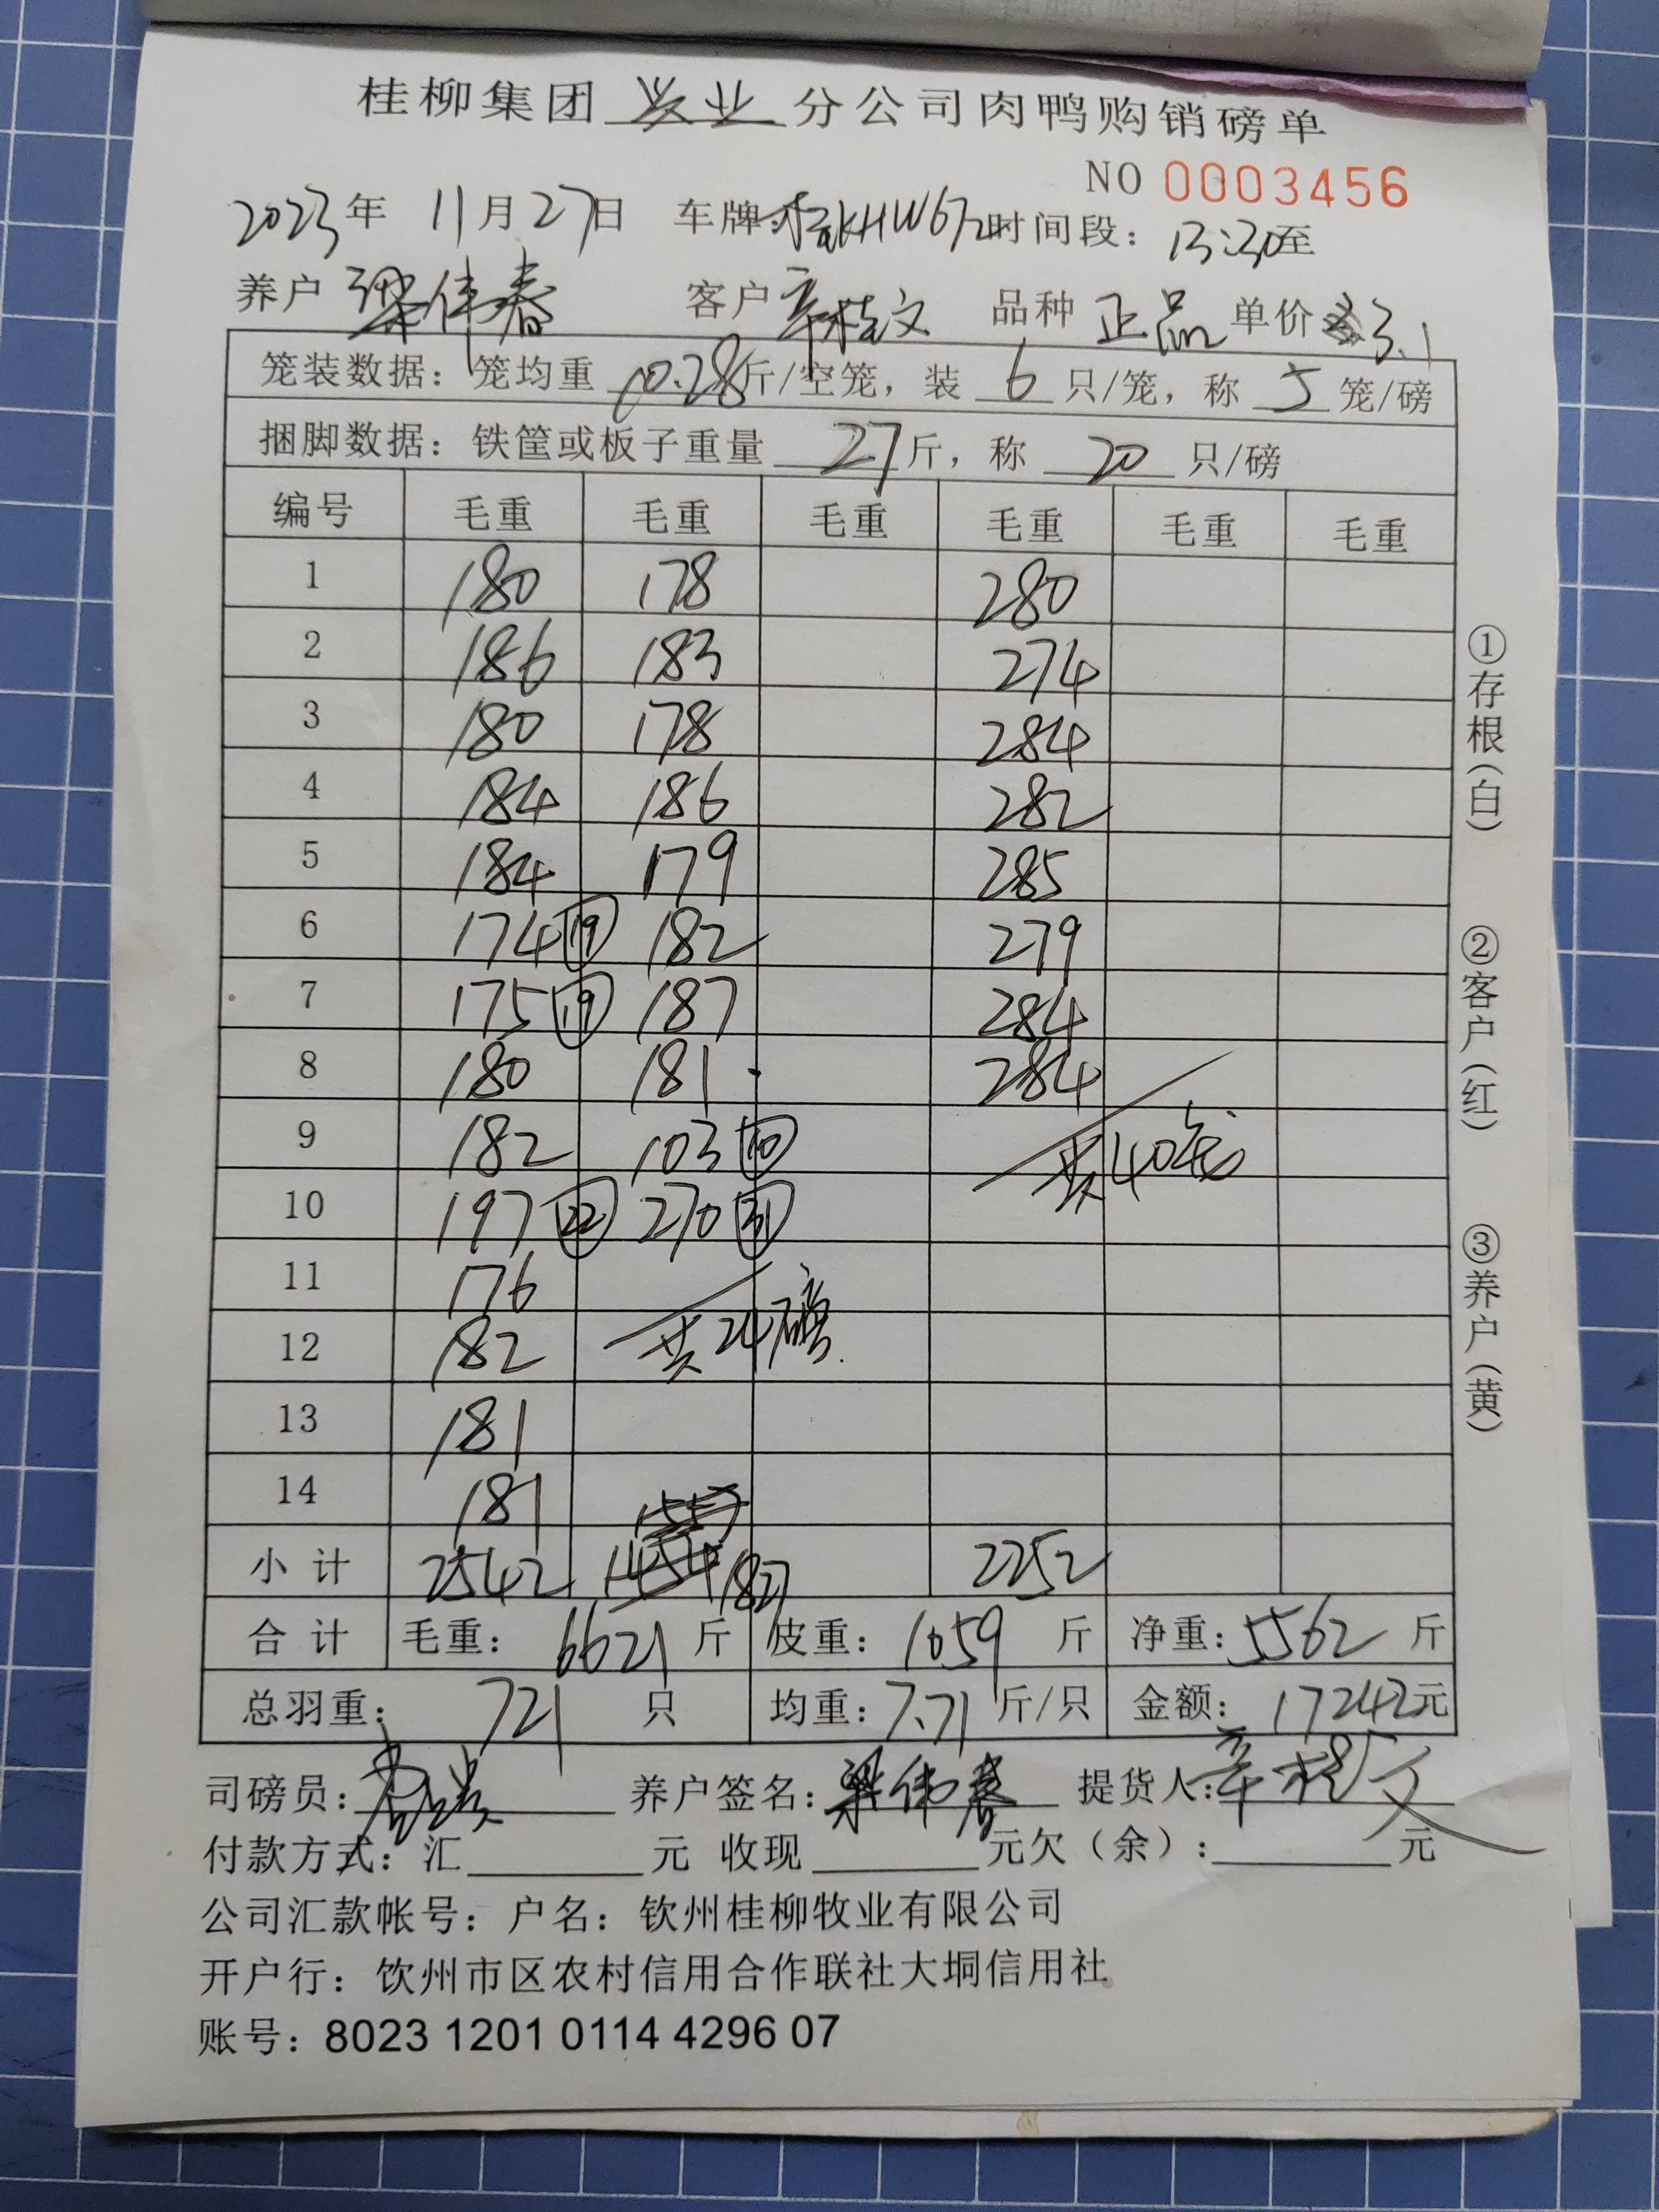 桂柳集团 兴业 分公司肉鸭购销磅单
NO 0003456
2023年 11月27日 车牌:桂KHW672 时间段：13:30至
养户 梁伟春 客户 辛桂文 品种 正品 单价 3.1
笼装数据：笼均重 10.28斤/空笼，装 6 只/笼，称 5 笼/磅
捆脚数据：铁筐或板子重量 27斤，称 20 只/磅
编号 毛重 毛重 毛重 毛重 毛重 毛重
1 180 178 280
2 186 183 274
3 180 178 284
4 184 186 282
5 184 179 285
6 174 19 182 279
7 175 19 187 284
8 180 181 284
9 182 103 10 共40笼
10 197 22 270 31
11 176
12 182 共24磅
13 181
14 181
小计 2542 1827 2252
合计 毛重：6621斤 皮重：1059斤 净重：5562斤
总羽重：721只 均重：7.71斤/只 金额：17242元
司磅员： 养户签名：梁伟春 提货人：辛桂文
付款方式：汇 元 收现 元欠（余）： 元
公司汇款帐号：户名：钦州桂柳牧业有限公司
开户行：饮州市区农村信用合作联社大垌信用社
账号：8023 1201 0114 4296 07
①存根（白）
②客户（红）
③养户（黄）